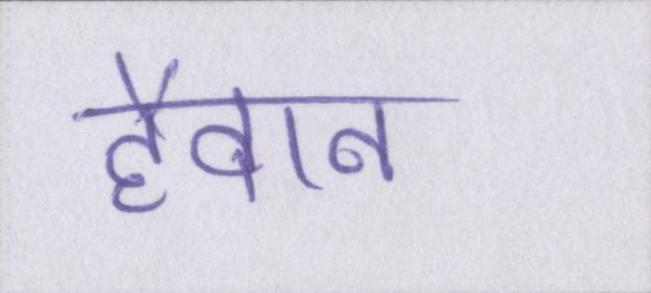 हैवान